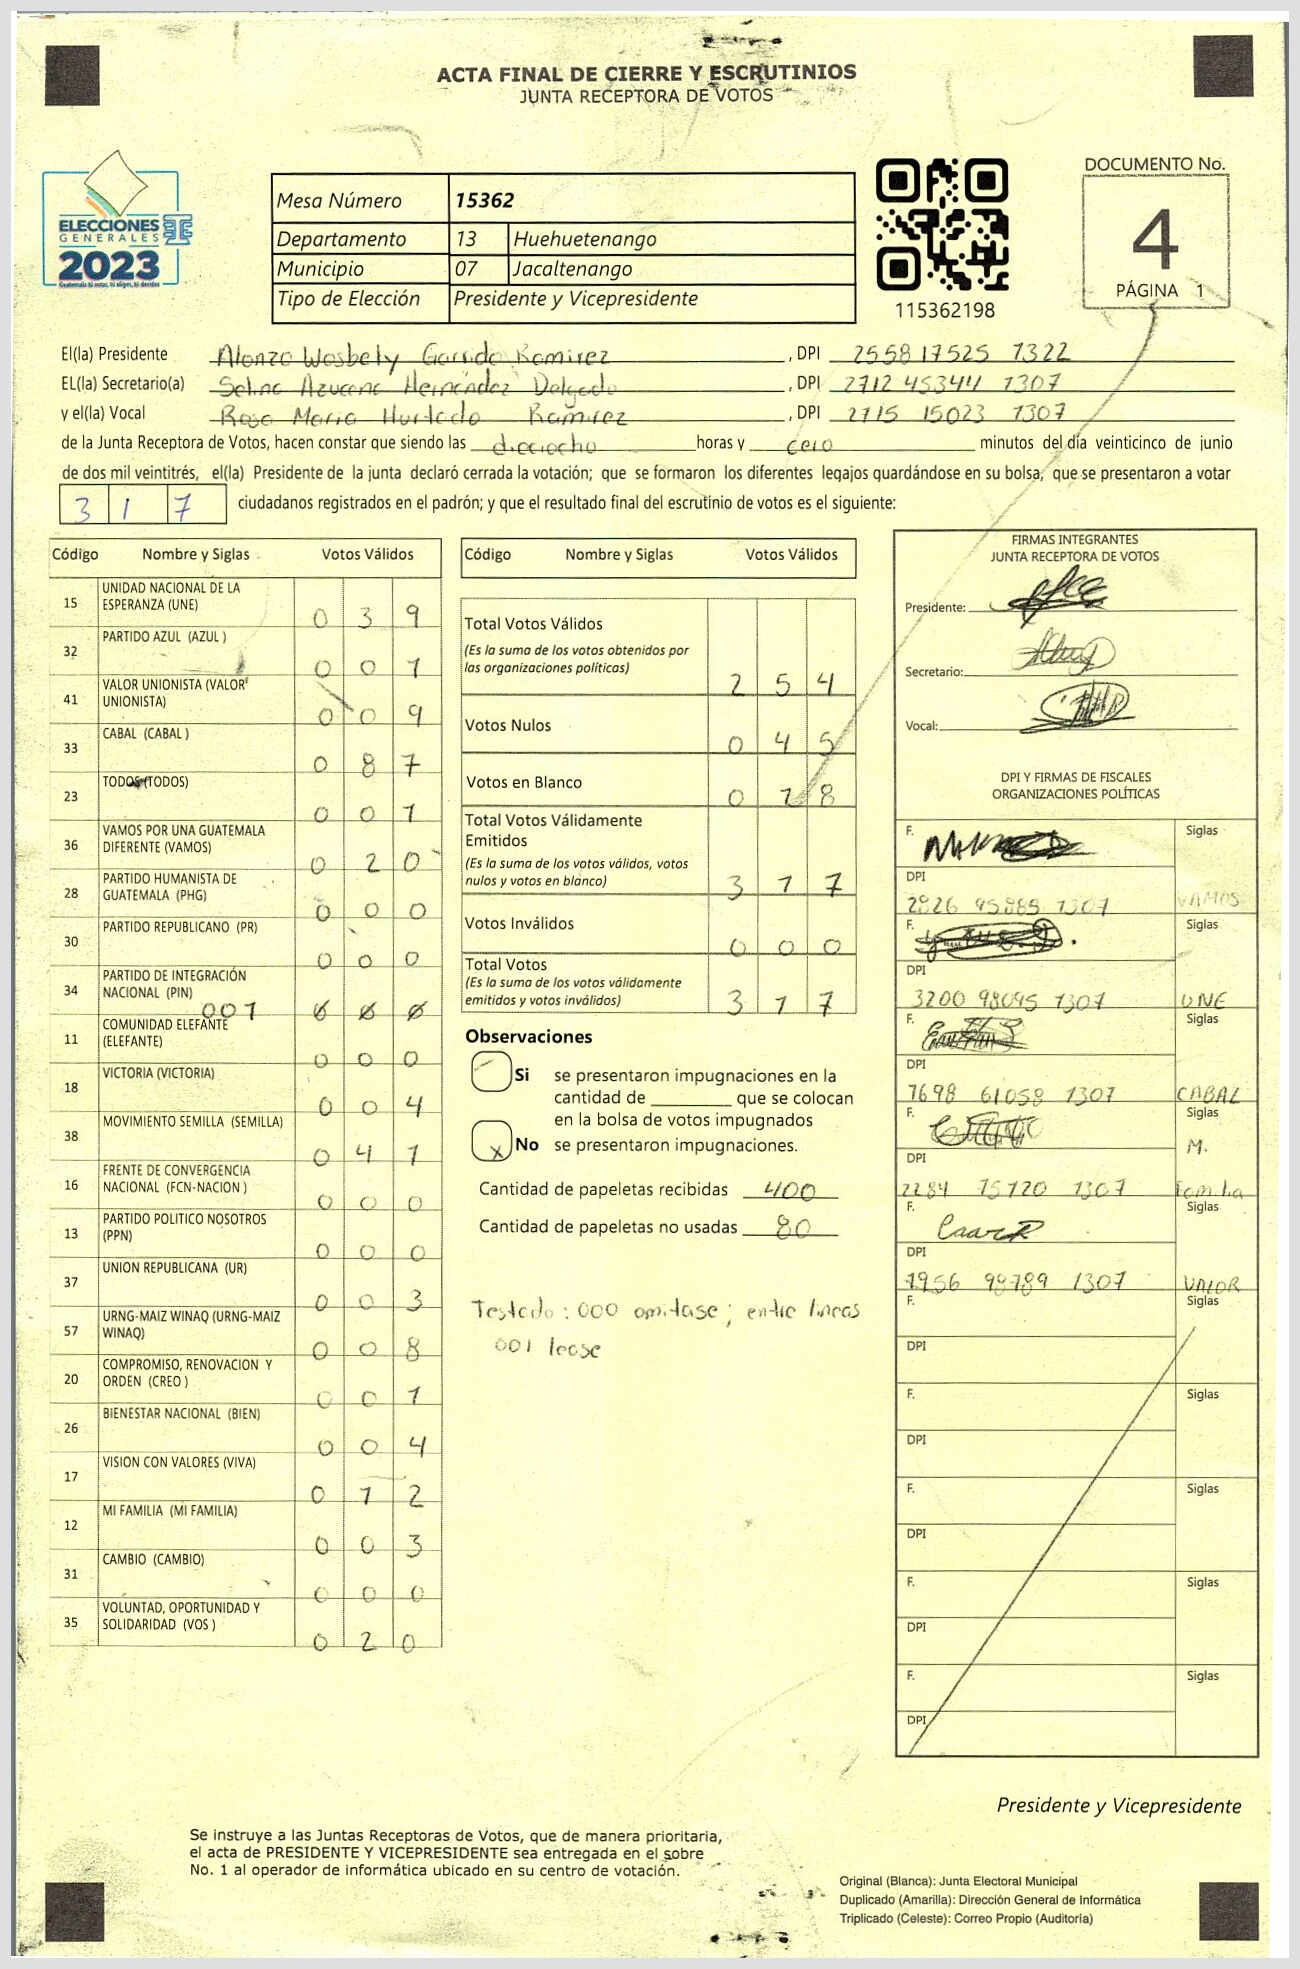 ACTA FINAL DE CIERRE Y ESCRUTINIOS
JUNTA RECEPTORA DE VOTOS
ELECCIONES
GENERALES
2023
Mesa Número 15362
Departamento 13 Huehuetenango
Municipio 07 Jacaltenango
Tipo de Elección Presidente y Vicepresidente
115362198
DOCUMENTO No.
4
PÁGINA 1
El(la) Presidente Alonzo Wosbely Garrido Ramirez , DPI 2558 17525 1322
EL(la) Secretario(a) Selina Azucena Hernández Delgado , DPI 2712 45344 1307
y el(la) Vocal Rosa Maria Hurtado Ramirez , DPI 2715 15023 1307
de la Junta Receptora de Votos, hacen constar que siendo las dieciocho horas y cero minutos del día veinticinco de junio
de dos mil veintitrés, el(la) Presidente de la junta declaró cerrada la votación; que se formaron los diferentes legajos quardándose en su bolsa, que se presentaron a votar
3 1 7 ciudadanos registrados en el padrón; y que el resultado final del escrutinio de votos es el siguiente:
Código Nombre y Siglas Votos Válidos
15 UNIDAD NACIONAL DE LA ESPERANZA (UNE) 0 3 9
32 PARTIDO AZUL (AZUL ) 0 0 1
41 VALOR UNIONISTA (VALOR UNIONISTA) 0 0 9
33 CABAL (CABAL ) 0 8 7
23 TODOS (TODOS) 0 0 1
36 VAMOS POR UNA GUATEMALA DIFERENTE (VAMOS) 0 2 0
28 PARTIDO HUMANISTA DE GUATEMALA (PHG) 0 0 0
30 PARTIDO REPUBLICANO (PR) 0 0 0
34 PARTIDO DE INTEGRACIÓN NACIONAL (PIN) 001 0 0 0
11 COMUNIDAD ELEFANTE (ELEFANTE) 0 0 0
18 VICTORIA (VICTORIA) 0 0 4
38 MOVIMIENTO SEMILLA (SEMILLA) 0 4 1
16 FRENTE DE CONVERGENCIA NACIONAL (FCN-NACION ) 0 0 0
13 PARTIDO POLITICO NOSOTROS (PPN) 0 0 0
37 UNION REPUBLICANA (UR) 0 0 3
57 URNG-MAIZ WINAQ (URNG-MAIZ WINAQ) 0 0 8
20 COMPROMISO, RENOVACION Y ORDEN (CREO ) 0 0 1
26 BIENESTAR NACIONAL (BIEN) 0 0 4
17 VISION CON VALORES (VIVA) 0 1 2
12 MI FAMILIA (MI FAMILIA) 0 0 3
31 CAMBIO (CAMBIO) 0 0 0
35 VOLUNTAD, OPORTUNIDAD Y SOLIDARIDAD (VOS ) 0 2 0
Código Nombre y Siglas Votos Válidos
Total Votos Válidos 2 5 4
(Es la suma de los votos obtenidos por
las organizaciones políticas)
Votos Nulos 0 4 5
Votos en Blanco 0 1 8
Total Votos Válidamente
Emitidos 3 1 7
(Es la suma de los votos válidos, votos
nulos y votos en blanco)
Votos Inválidos 0 0 0
Total Votos 3 1 7
(Es la suma de los votos válidamente
emitidos y votos inválidos)
Observaciones
Si se presentaron impugnaciones en la
cantidad de ________ que se colocan
en la bolsa de votos impugnados
x No se presentaron impugnaciones.
Cantidad de papeletas recibidas 400
Cantidad de papeletas no usadas 80
Testado: 000 omitase; entre lineas
001 lease
FIRMAS INTEGRANTES
JUNTA RECEPTORA DE VOTOS
Presidente:
Secretario:
Vocal:
DPI Y FIRMAS DE FISCALES
ORGANIZACIONES POLÍTICAS
F. Siglas
DPI
2826 95885 1307 VAMOS
F. Siglas
DPI
3200 98095 1307 UNE
F. Siglas
DPI
1698 61058 1307 CABAL
F. Siglas
DPI M.
2284 15120 1307 Familia
F. Siglas
DPI
1956 98789 1307 VALOR
F. Siglas
DPI
F. Siglas
DPI
F. Siglas
DPI
F. Siglas
DPI
F. Siglas
DPI
Presidente y Vicepresidente
Se instruye a las Juntas Receptoras de Votos, que de manera prioritaria,
el acta de PRESIDENTE Y VICEPRESIDENTE sea entregada en el sobre
No. 1 al operador de informática ubicado en su centro de votación.
Original (Blanca): Junta Electoral Municipal
Duplicado (Amarilla): Dirección General de Informática
Triplicado (Celeste): Correo Propio (Auditoría)